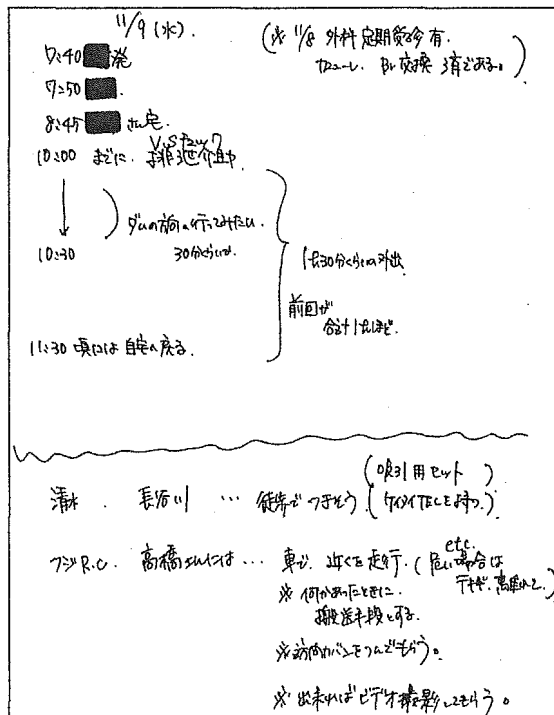 11/9 (水).
(※ 11/8 外科 定期受診有.
カニューレ. Br 交換 済である。)
7:40 発
7:50 .
8:45 さん宅.
10:00 までに. V.Sチェック
排泄介助
10:30
ダムの方向へ行ってみたい.
30分くらい
1h30分くらいの外出
前回が
合計1hほど.
11:30 頃には 自宅へ戻る.
清水 . 長谷川 … 徒歩でつきそう. (吸引用セット)
フジR.C. 高橋さんには … 車で. 近くを走行. (危ない場合は etc.
※ 何かあったときに.
搬送手段とする.
※訪問カバンをつんでもらう。
※ 出来ればビデオ撮影してもらう。